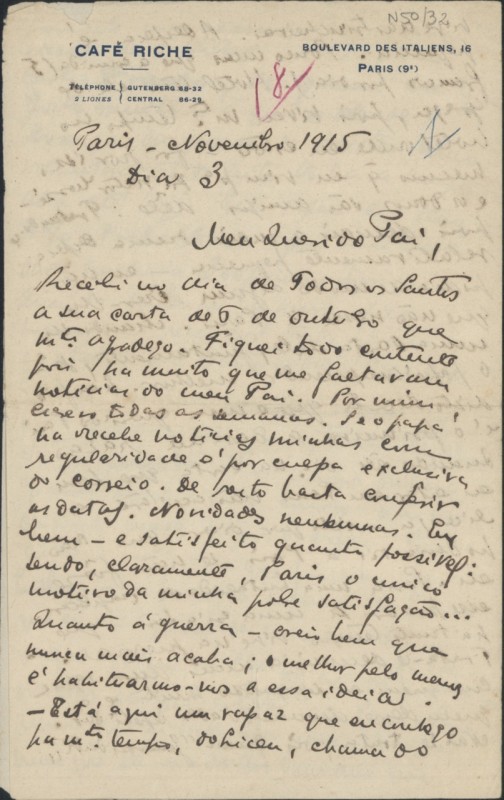 N50/32
CAFÉ RICHE
BOULEVARD DES ITALIENS, 16
PARIS (9e)
TÉLÉPHONE GUTENBERG 68-32
2 LIGNES CENTRAL 86-29
8.
Paris - Novembro 1915
Dia 3
Meu Querido Pai,
Recebi no dia de Todos os Santos
a sua carta de de outubro que
mto. agradeço. Fiquei todo contente
pois ha muito que me faltavam
noticias do meu Pai. Por mim
escrevo todas as semanas. Se o papá
não recebe noticias minhas com
regularidade é por culpa exclusiva
do correio. De resto basta conferir
as datas. Novidades nenhumas. Eu
bem - e satisfeito quanto possivel:
sendo, claramente, Paris o unico
motivo da minha pobre satisfação...
Quanto á guerra - creio bem que
nunca mais acaba; o melhor pelo menos
é habituarmo-nos a essa ideia.
- Está aqui um rapaz que eu conheço
ha mto. tempo, do liceu, chamado